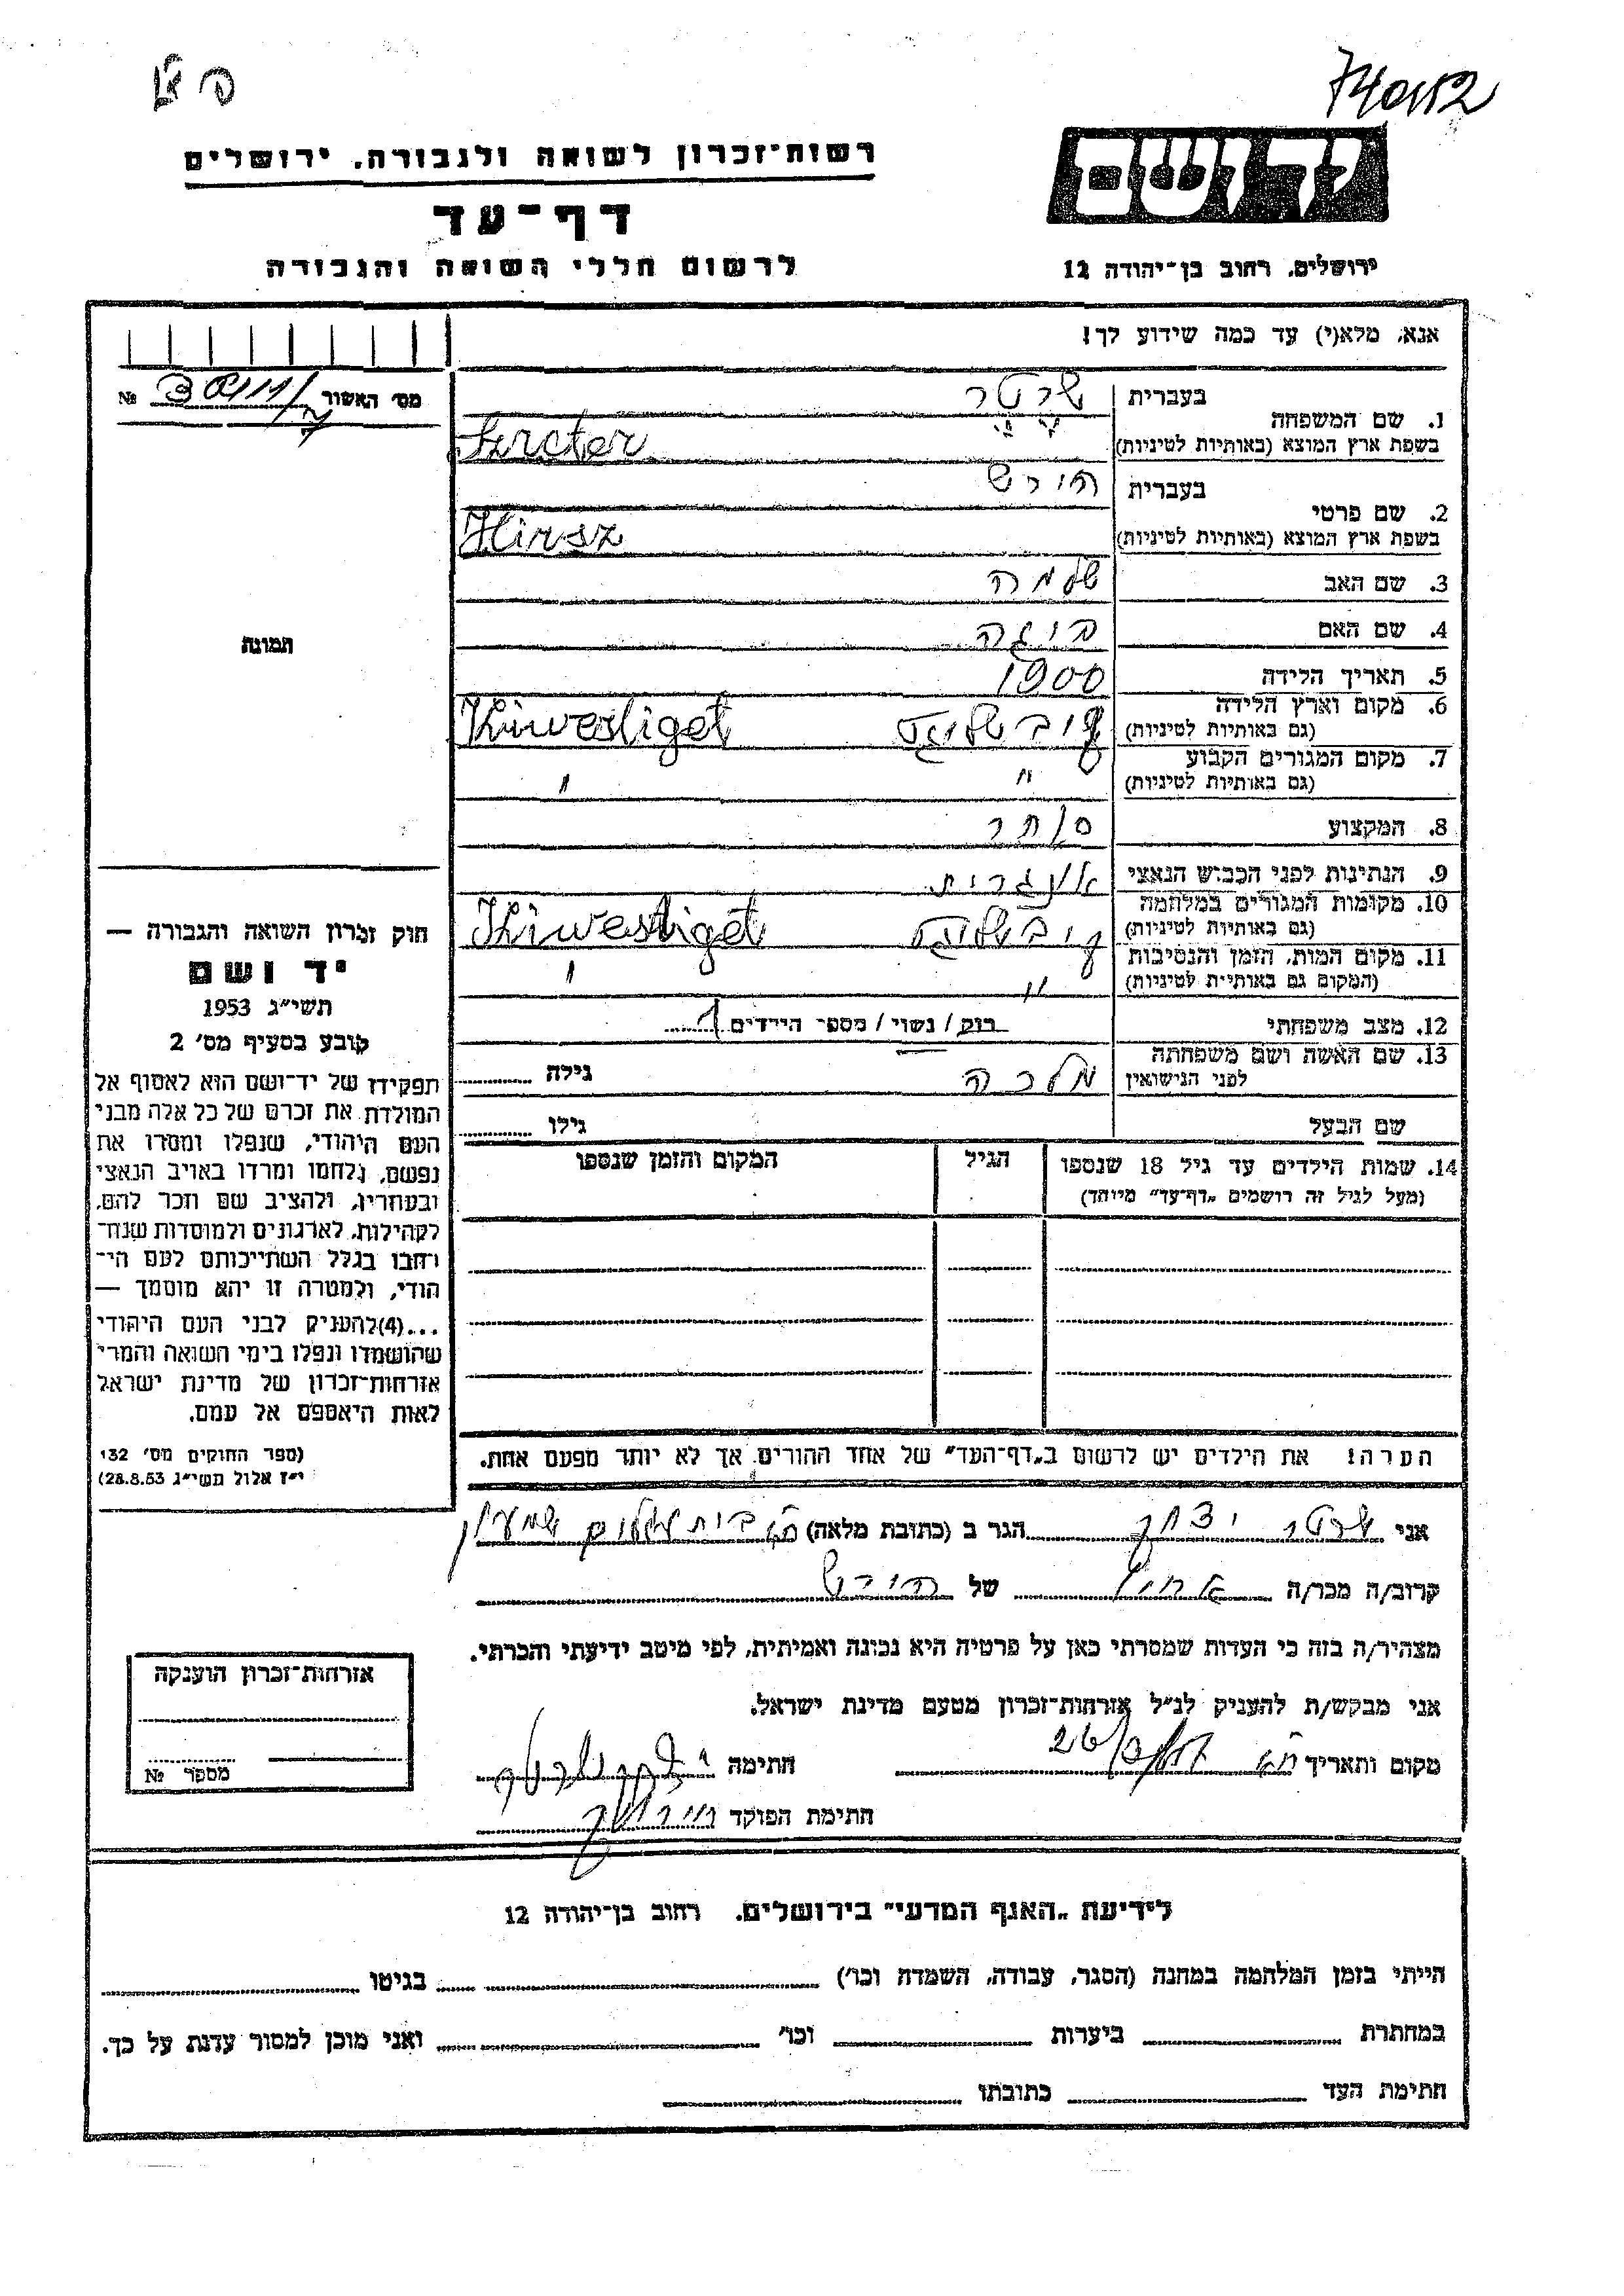 74052
רשות־זכרון לשואה ולגבורה, ירושלים
יד ושם
דף־עד
לרשום חללי השואה והגבורה
ירושלים, רחוב בן־יהודה 12
אנא, מלא(י) עד כמה שידוע לך!
מס׳ האשור №
1. שם המשפחה
בעברית שרטר
בשפת ארץ המוצא (באותיות לטיניות) Srcter
2. שם פרטי
בעברית הירש
בשפת ארץ המוצא (באותיות לטיניות) Hirsz
3. שם האב שלמה
4. שם האם
תמונה
5. תאריך הלידה 1900
6. מקום וארץ הלידה
(גם באותיות לטיניות) Kiwesliget
7. מקום המגורים הקבוע
(גם באותיות לטיניות) " "
8. המקצוע סוחר
9. הנתינות לפני הכבוש הנאצי
10. מקומות המגורים במלחמה
(גם באותיות לטיניות) Kiwesliget
11. מקום המות, הזמן והנסיבות
(המקום גם באותיות לטיניות) " "
12. מצב משפחתי רוק/נשוי/מספר הילדים 1
13. שם האשה ושם משפחתה
לפני הנישואין מלכה גילה
שם הבעל גילו
14. שמות הילדים עד גיל 18 שנספו הגיל המקום והזמן שנספו
(מעל לגיל זה רושמים „דף־עד” מיוחד)
הערה! את הילדים יש לרשום ב„דף־העד” של אחד ההורים אך לא יותר מפעם אחת.
חוק זכרון השואה והגבורה —
יד ושם
תשי״ג 1953
קובע בסעיף מס׳ 2
תפקידו של יד־ושם הוא לאסוף אל
המולדת את זכרם של כל אלה מבני
העם היהודי, שנפלו ומסרו את
נפשם, נלחמו ומרדו באויב הנאצי
ובעוזריו, ולהציב שם וזכר להם,
לקהילות, לארגונים ולמוסדות שנח־
רבו בגלל השתייכותם לעם הי־
הודי, ולמטרה זו יהא מוסמך —
...(4) להעניק לבני העם היהודי
שהושמדו ונפלו בימי השואה והמרי
אזרחות־זכרון של מדינת ישראל
לאות היאספם אל עמם.
(ספר החוקים מס׳ 132
י״ז אלול תשי״ג 28.8.53)
אני שרטר יצחק הגר ב (כתובת מלאה)
קרוב/ה מכר/ה של הירש
מצהיר/ה בזה כי העדות שמסרתי כאן על פרטיה היא נכונה ואמיתית, לפי מיטב ידיעתי והכרתי.
אני מבקש/ת להעניק לנ״ל אזרחות־זכרון מטעם מדינת ישראל.
מקום ותאריך חתימה
חתימת הפוקד
אזרחות־זכרון הוענקה
מספר №
לידיעת „האגף המדעי” בירושלים, רחוב בן־יהודה 12
הייתי בזמן המלחמה במחנה (הסגר, עבודה, השמדה וכו׳) בגיטו
במחתרת ביערות וכו׳ ואני מוכן למסור עדות על כך.
חתימת העד כתובתו